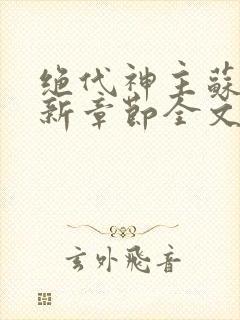 绝代神主蘇
新章節全文
玄外飛音